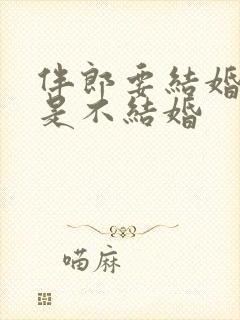 伴郎要結婚
是不結婚
喵麻